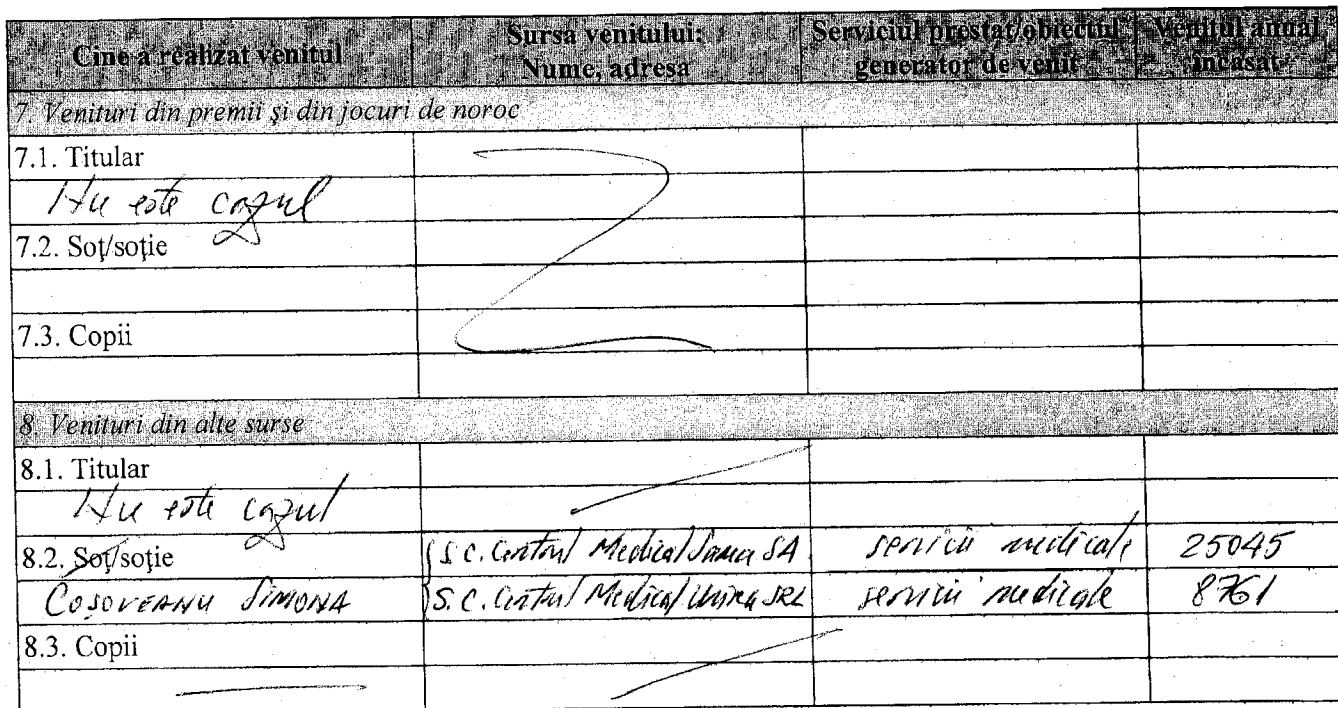 Cine a realizat venitul Sursa venitului: Nume, adresa Serviciul prestat/obiectul generator de venit Venitul anual încasat
7. Venituri din premii şi din jocuri de noroc
7.1. Titular
Nu este cazul
7.2. Soţ/soţie
7.3. Copii
8. Venituri din alte surse
8.1. Titular
Nu este cazul
8.2. Soţ/soţie S.C. Centrul Medical Sama SA servicii medicale 25045
COSOVEANU SIMONA S.C. Centrul Medical Unirea SRL servicii medicale 8761
8.3. Copii